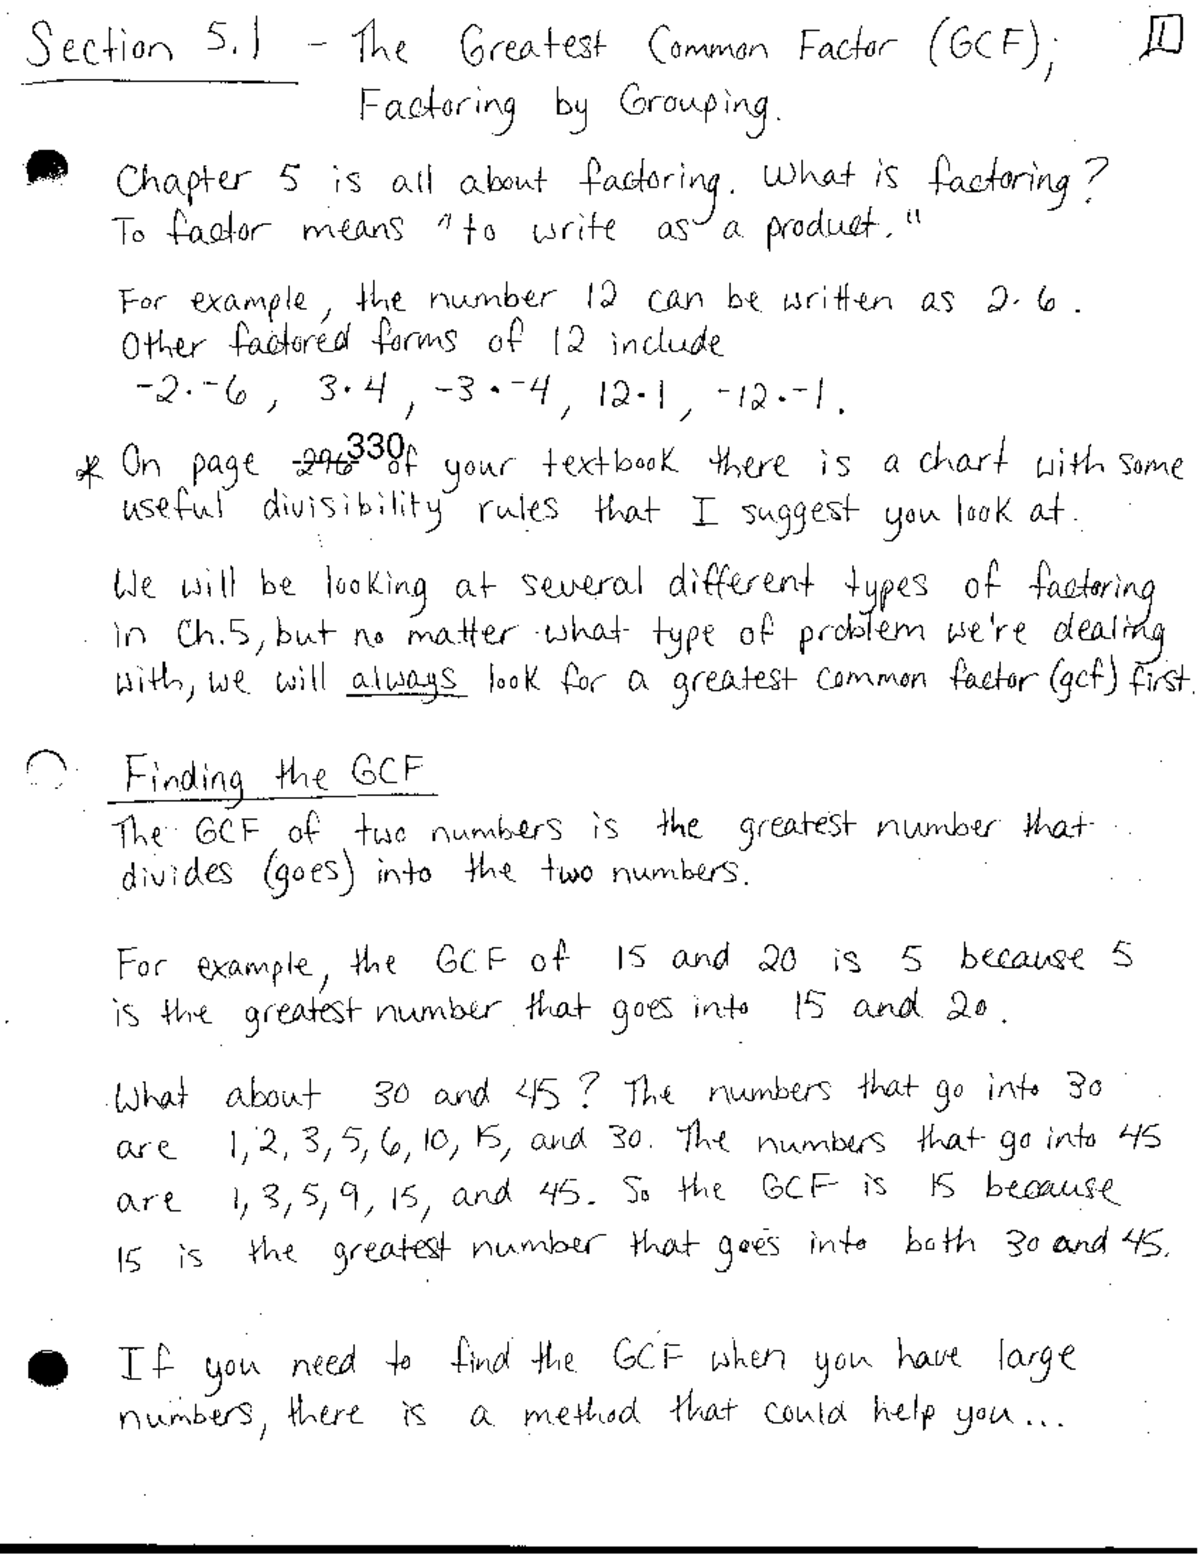 Section 5.1 - The Greatest Common Factor (GCF); 1
Factoring by Grouping.
Chapter 5 is all about factoring. What is factoring?
To factor means "to write as a product."
For example, the number 12 can be written as 2·6.
Other factored forms of 12 include
-2·-6, 3·4, -3·-4, 12·1, -12·-1.
* On page 296 330 of your textbook there is a chart with some
useful divisibility rules that I suggest you look at.
We will be looking at several different types of factoring
in Ch.5, but no matter what type of problem we're dealing
with, we will always look for a greatest common factor (gcf) first.
Finding the GCF
The GCF of two numbers is the greatest number that
divides (goes) into the two numbers.
For example, the GCF of 15 and 20 is 5 because 5
is the greatest number that goes into 15 and 20.
What about 30 and 45? The numbers that go into 30
are 1, 2, 3, 5, 6, 10, 15, and 30. The numbers that go into 45
are 1, 3, 5, 9, 15, and 45. So the GCF is 15 because
15 is the greatest number that goes into both 30 and 45.
If you need to find the GCF when you have large
numbers, there is a method that could help you...